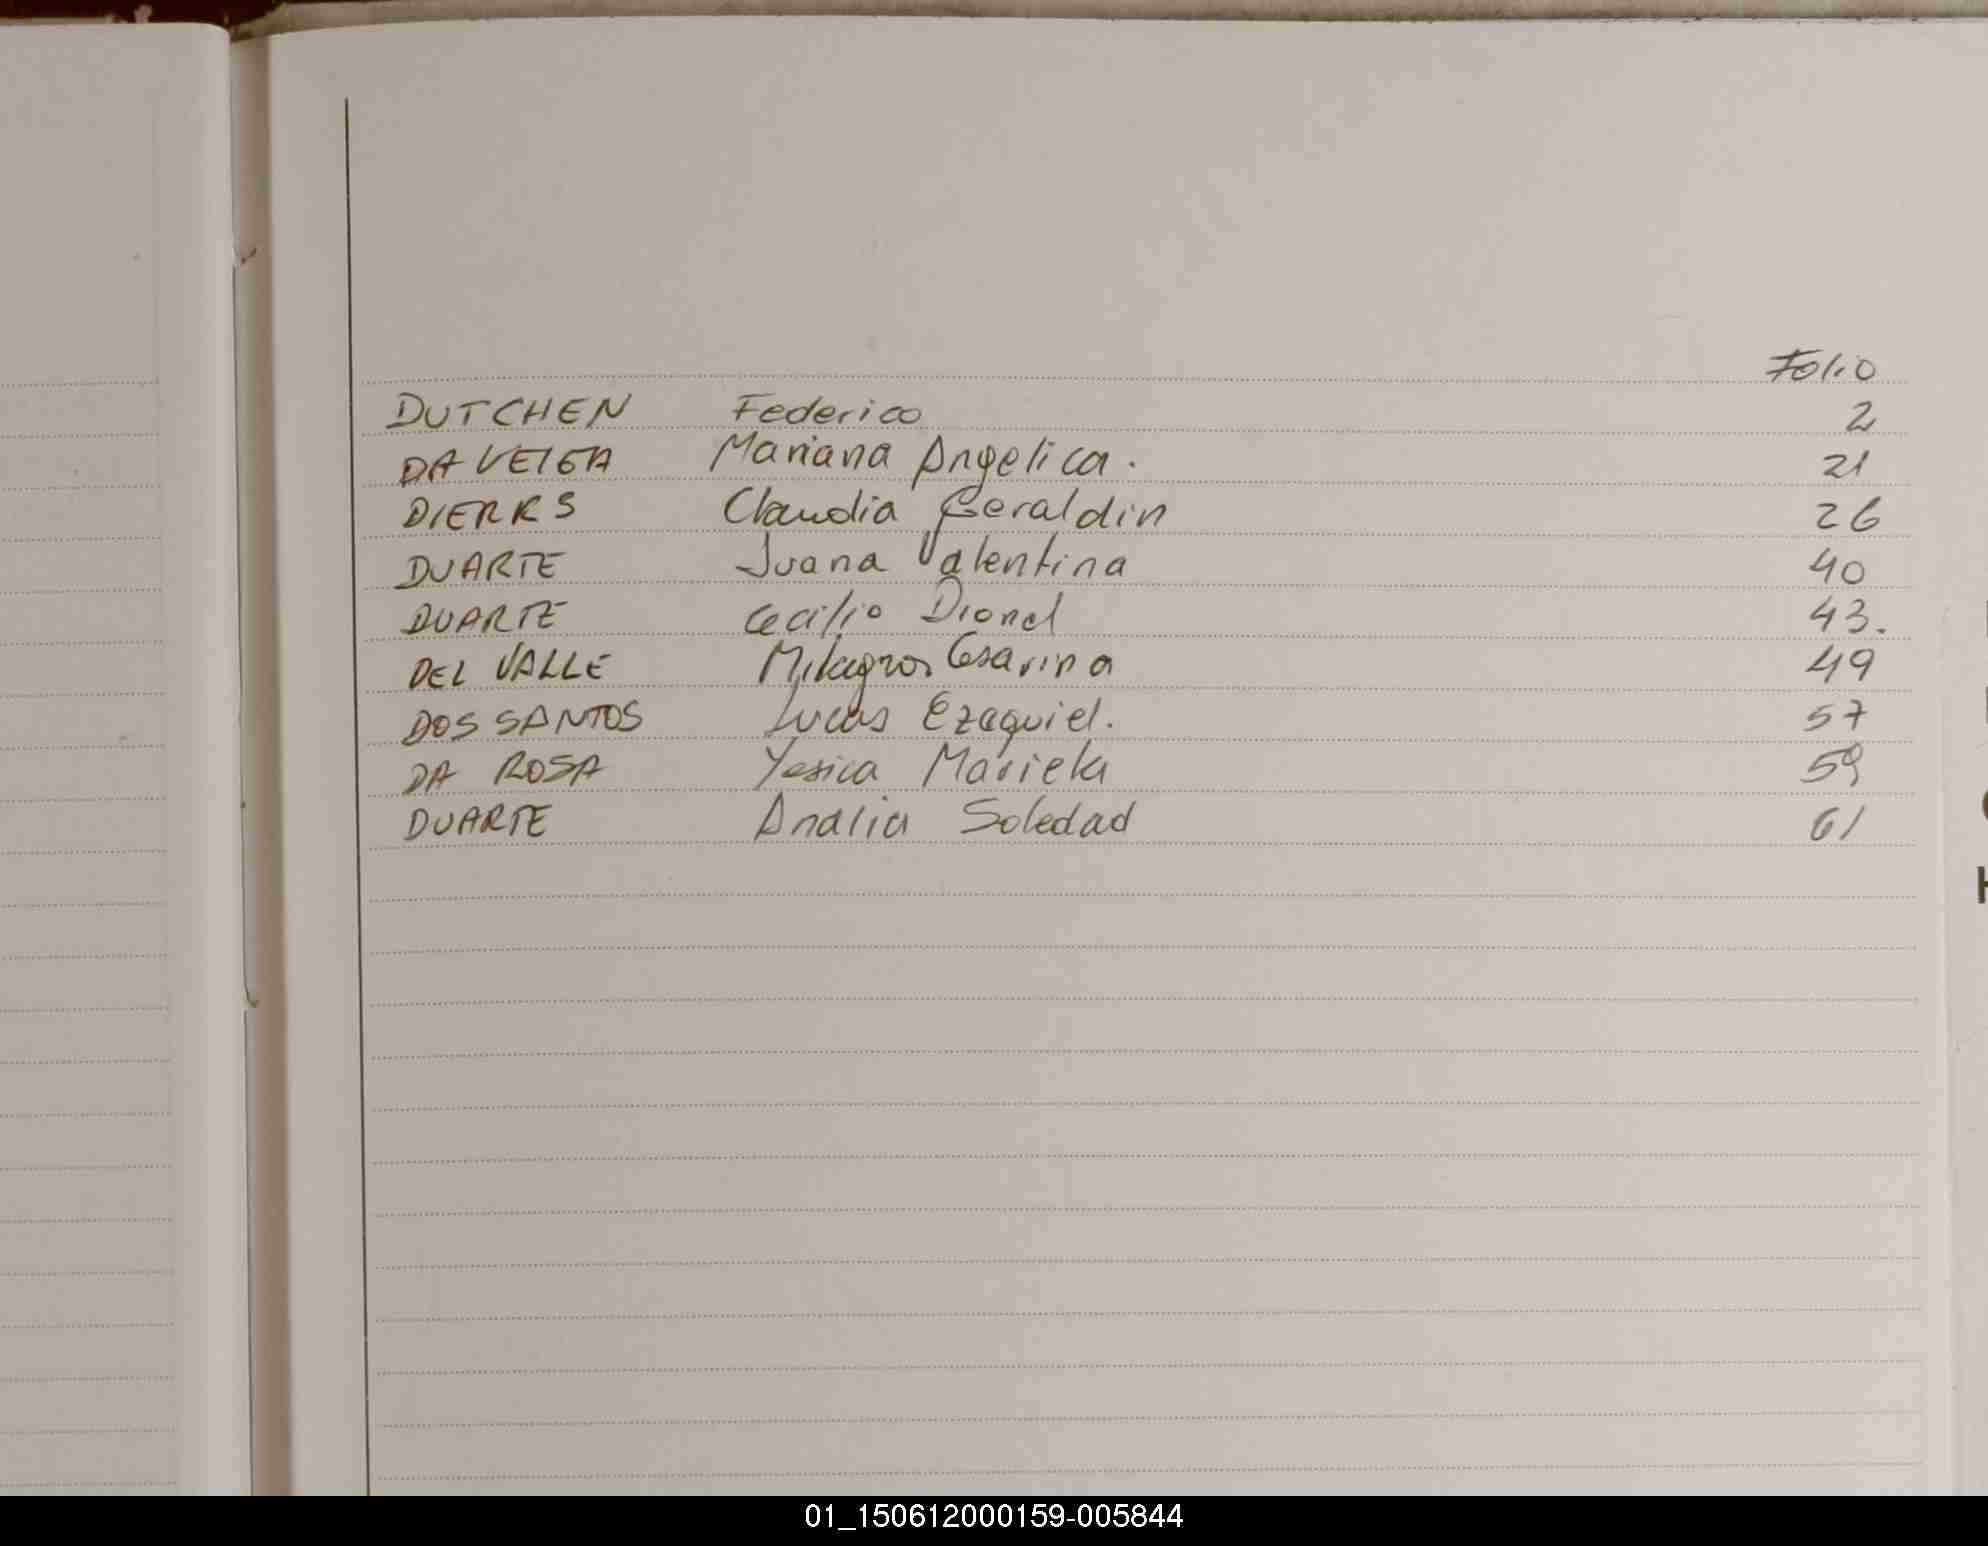 Folio
DUTCHEN Federico 2
DA VEIGA Mariana Angelica. 21
DIERRS Claudia Geraldin 26
DUARTE Juana Valentina 40
DUARTE Cecilio Dionel 43.
DEL VALLE Milagros Cesarina 49
DOS SANTOS Lucas Ezequiel. 57
DA ROSA Yesica Mariela 59
DUARTE Analia Soledad 61
01_150612000159-005844